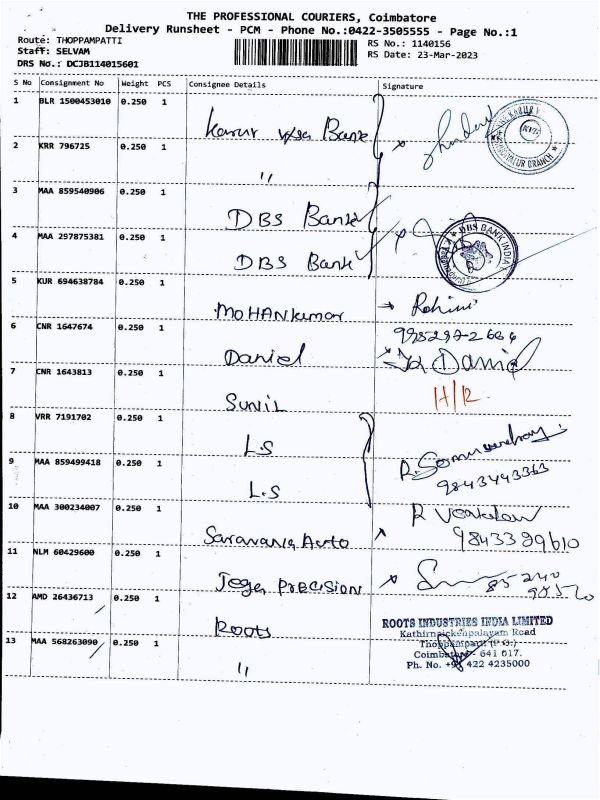 THE PROFESSIONAL COURIERS, Coimbatore
Delivery Runsheet - PCM - Phone No.:0422-3505555 - Page No.:1
Route: THOPPAMPATTI
Staff: SELVAM
DRS No.: DCJB114015601
RS No.: 1140156
RS Date: 23-Mar-2023
S No Consignment No Weight PCS Consignee Details Signature
1 BLR 1500453010 0.250 1 Karur Vysa Bank
2 KRR 796725 0.250 1 "
3 MAA 859540906 0.250 1 DBS Bank
DBS BANK INDIA
4 MAA 297875381 0.250 1 DBS Bank
5 KUR 694638784 0.250 1 MOHANkumar Rohini
6 CNR 1647674 0.250 1 Daniel Daniel
7 CNR 1643813 0.250 1 Sunil H/R
8 VRR 7191702 0.250 1 LS
9 MAA 859499418 0.250 1 L.S 9843443363
10 MAA 300234007 0.250 1 Saravana Auto 9843389610
11 NLM 60429600 0.250 1 Precision
12 AMD 26436713 0.250 1 Roots
ROOTS INDUSTRIES INDIA LIMITED
Kathirnaickenpalayam Road
Thoppampatti (P.O.)
13 MAA 568263090 0.250 1 "
Coimbatore - 641 017.
Ph. No. +91 422 4235000